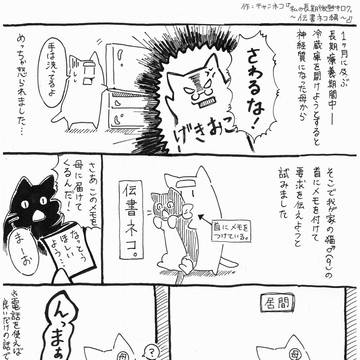 作:チャンネコ『私の長期
〜伝書ネコ編〜』
1ヶ月に及ぶ
長期療養期間中―
冷蔵庫を開けようとすると
神経質になった母から
めっちゃ怒られました…
さわるな!
げきおこ。
手は洗ってるよ
そこで我が家の猫♂(8)の
首にメモを付けて
要求を伝えようと
試みました
首にメモを
つけている。
伝書ネコ。
さあ このメモを
母に届けて
くるんだ!
なっとう
ほしい
よう。
まーお
居間
母
?
母
んっまぁ
※電話を使えば
良いだけの話で